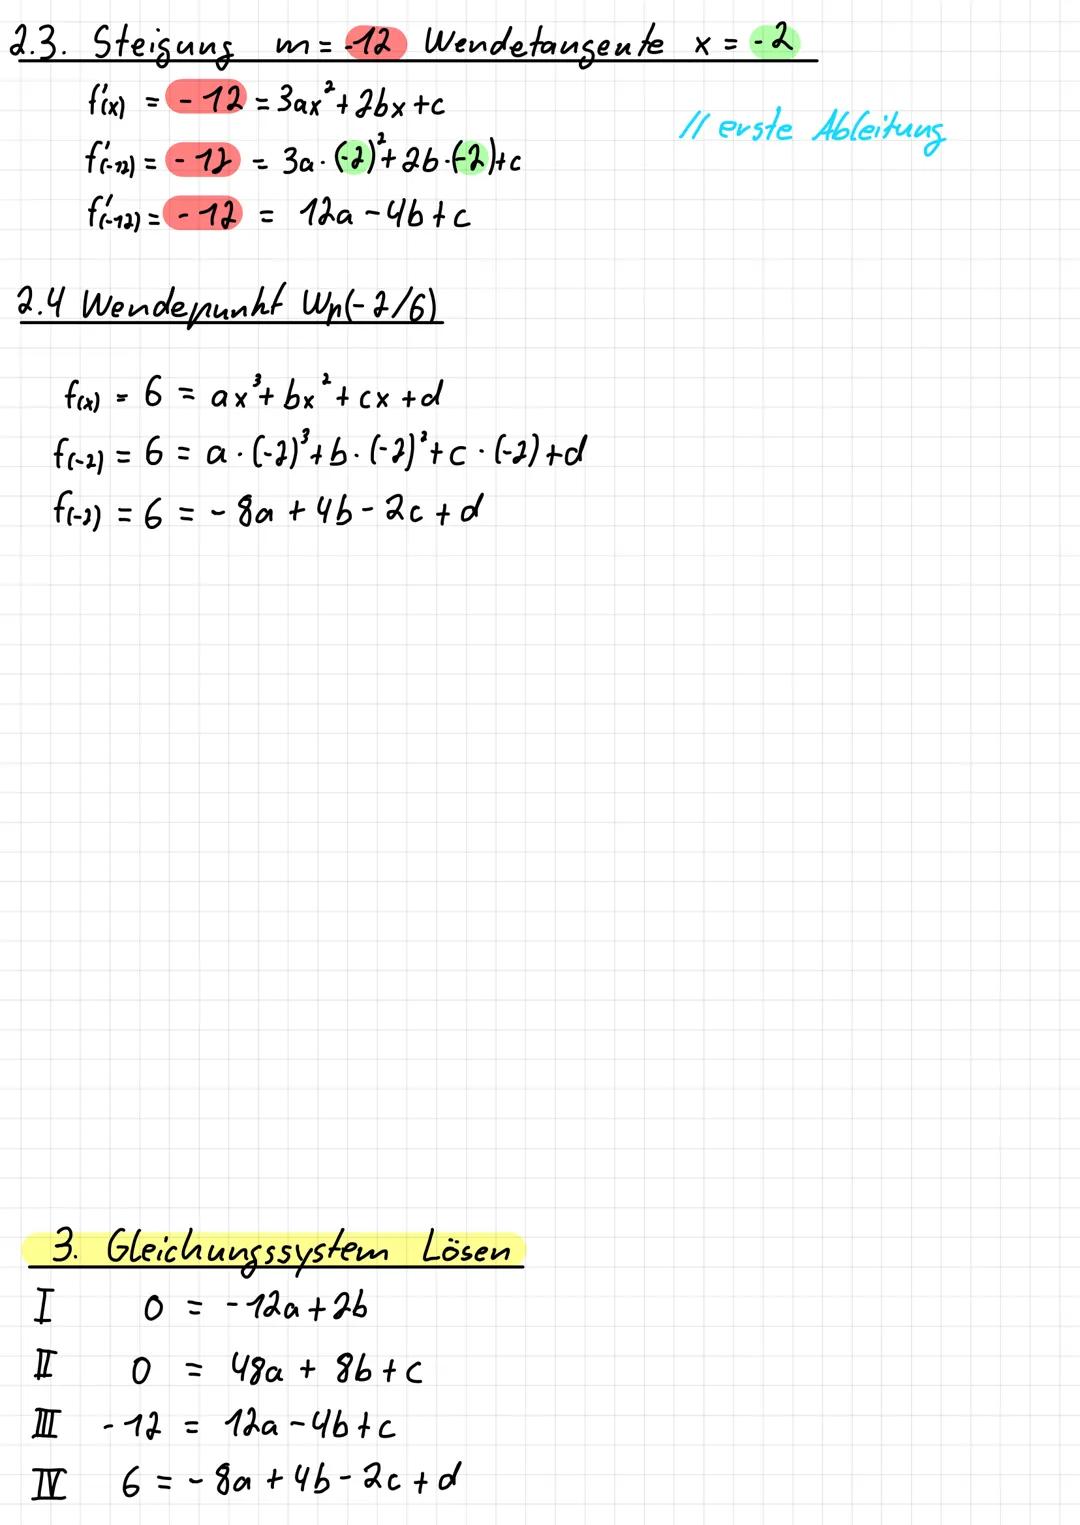 2.3. Steigung m = -12 Wendetangente x = -2
f'(x) = -12 = 3ax² + 2bx + c
// erste Ableitung
f'(-12) = -12 = 3a · (-2)² + 2b · (-2) + c
f'(-12) = -12 = 12a - 4b + c
2.4 Wendepunkt Wp(-2/6)
f(x) = 6 = ax³ + bx² + cx + d
f(-2) = 6 = a · (-2)³ + b · (-2)² + c · (-2) + d
f(-2) = 6 = - 8a + 4b - 2c + d
3. Gleichungssystem Lösen
I 0 = -12a + 2b
II 0 = 48a + 8b + c
III -12 = 12a - 4b + c
IV 6 = - 8a + 4b - 2c + d